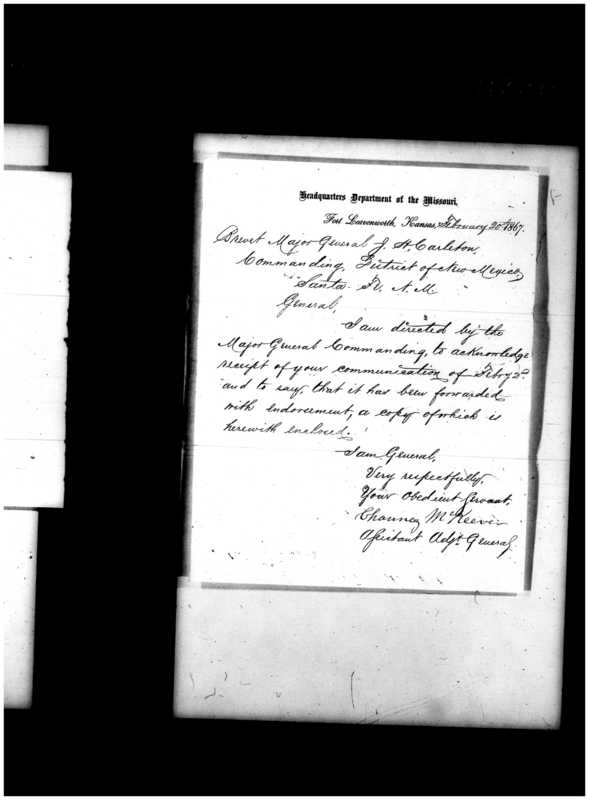 Headquarters Department of the Missouri,
Fort Leavenworth, Kansas, February 20th 1867.
Brevet Major General J. H. Carleton,
Commanding, District of New Mexico,
Santa Fe, N. M.
General,
I am directed by the
Major General Commanding, to acknowledge
receipt of your communication of Feby 2d
and to say, that it has been forwarded
with endorsement, a copy of which is
herewith enclosed.
I am General,
Very respectfully,
Your Obedient Servant,
Chauncey McKeever
Assistant Adjt. General